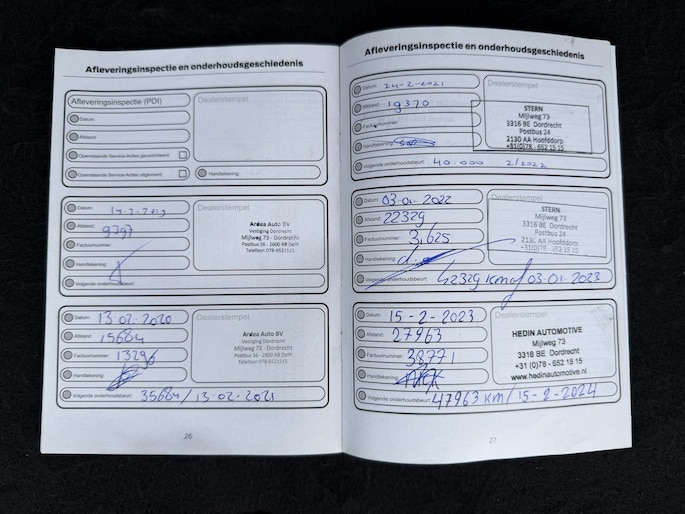 Afleveringsinspectie en onderhoudsgeschiedenis
Afleveringsinspectie (PDI)
Dealerstempel
Datum:
Afstand:
Openstaande Service-Acties gecontroleerd
Openstaande Service-Acties uitgevoerd
Handtekening:
Datum:
Dealerstempel
Afstand: 9797
Factuurnummer:
Handtekening:
Volgende onderhoudsbeurt:
Ardea Auto BV
Vestiging Dordrecht
Mijlweg 73 - Dordrecht
Postbus 56 - 2600 AB Delft
Telefoon 078-6521515
Datum: 13-02-2020
Dealerstempel
Afstand: 15684
Factuurnummer: 13296
Handtekening:
Volgende onderhoudsbeurt: 35684 / 13-02-2021
Ardea Auto BV
Vestiging Dordrecht
Mijlweg 73 - Dordrecht
Postbus 56 - 2600 AB Delft
Telefoon 078-6521515
26
Afleveringsinspectie en onderhoudsgeschiedenis
Datum: 24-2-2021
Dealerstempel
Afstand: 19370
Factuurnummer:
Handtekening:
Volgende onderhoudsbeurt: 40.000 2/2022
STERN
Mijlweg 73
3316 BE Dordrecht
Postbus 24
2130 AA Hoofddorp
+31(0)78 - 652 15 15
Datum: 03-01-2022
Dealerstempel
Afstand: 22329
Factuurnummer: 3,625
Handtekening:
Volgende onderhoudsbeurt: 42329 km of 03-01-2023
STERN
Mijlweg 73
3316 BE Dordrecht
Postbus 24
2130 AA Hoofddorp
+31(0)78 - 652 15 15
Datum: 15-2-2023
Dealerstempel
Afstand: 27963
Factuurnummer: 38771
Handtekening:
Volgende onderhoudsbeurt: 47963 km / 15-2-2024
HEDIN AUTOMOTIVE
Mijlweg 73
3316 BE Dordrecht
+31 (0)78 - 652 15 15
www.hedinautomotive.nl
27